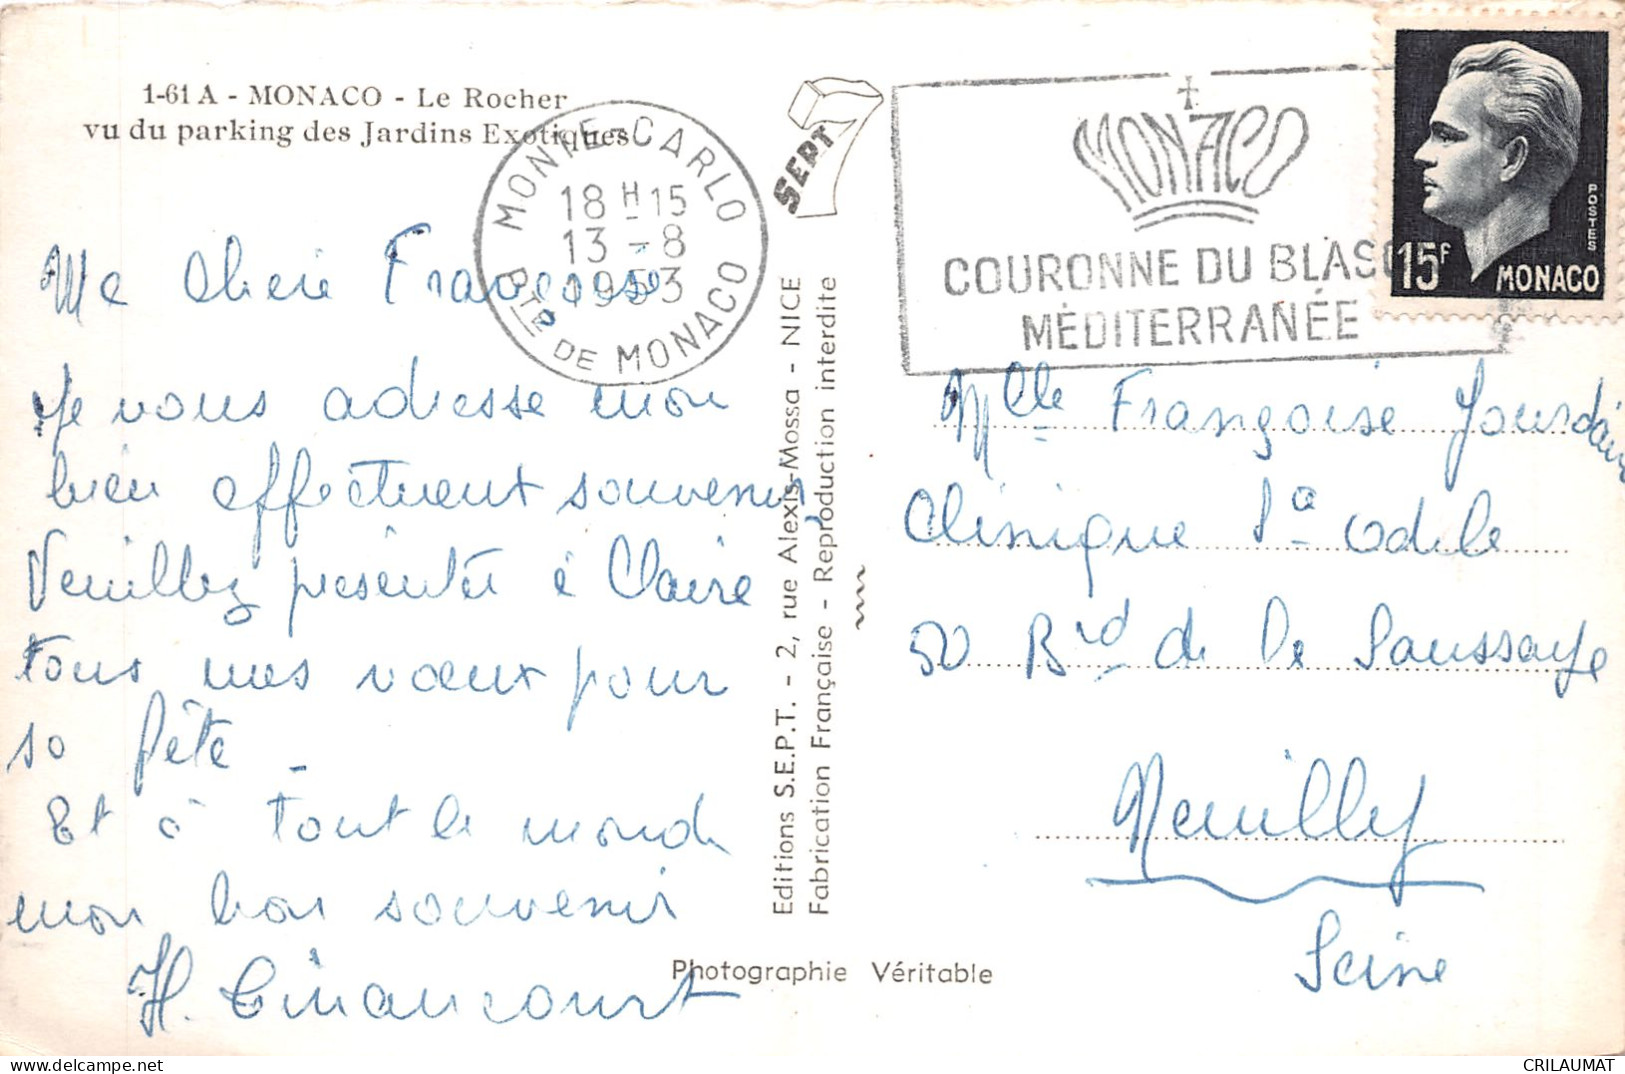 1-61 A - MONACO - Le Rocher
vu du parking des Jardins Exotiques
MONTE-CARLO
18 H 15
13 - 8
1953
PTE DE MONACO
SEPT 7
MONACO
COURONNE DU BLASO
MÉDITERRANÉE
POSTES
15F MONACO
Ma chère Françoise
Je vous adresse mon
bien affectueux souvenir,
Veuillez présenter à Claire
tous mes vœux pour
sa fête -
Et à tout le monde
mon bon souvenir
H.
Editions S.E.P.T. - 2, rue Alexis-Mossa - NICE
Fabrication Française - Reproduction interdite
Mlle Françoise Jourdain
Clinique Ste Odile
50 Brd de la Saussaye
Neuilly
Seine
Photographie Véritable
CRILAUMAT